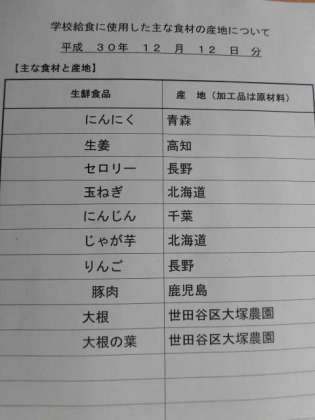 学校給食に使用した主な食材の産地について
平成 30年 12 月 12 日 分
【主な食材と産地】
生鮮食品 産 地(加工品は原材料)
にんにく 青森
生姜 高知
セロリー 長野
玉ねぎ 北海道
にんじん 千葉
じゃが芋 北海道
りんご 長野
豚肉 鹿児島
大根 世田谷区大塚農園
大根の葉 世田谷区大塚農園